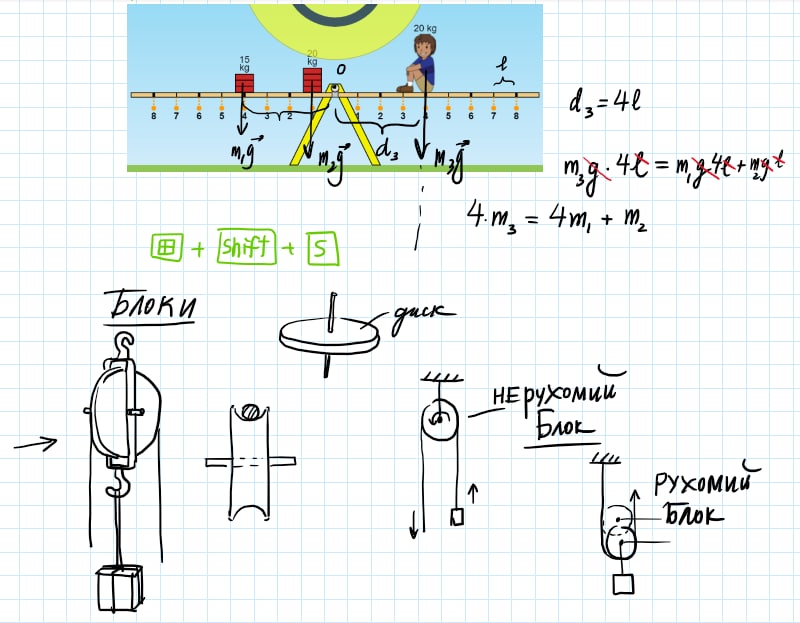 15
kg
20
kg
20 kg
O
ℓ
8 7 6 5 4 3 2 1 2 3 4 5 6 7 8
d₃
m₁g⃗
m₂g⃗
m₃g⃗
d₃ = 4ℓ
m₃g · 4ℓ = m₁g 4ℓ + m₂g ℓ
4·m₃ = 4m₁ + m₂
⊞ + Shift + S
Блоки
диск
НЕрухомий
Блок
Рухомий
Блок